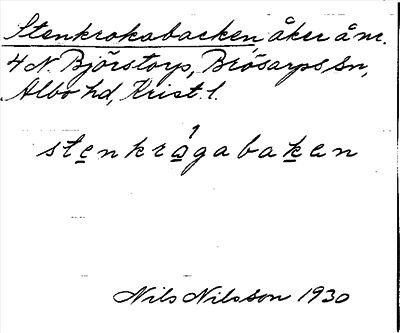 Stenkrokabacken, åker å nr.
4 N. Björstorp, Brösarps sn,
Albo hd, Krist. l.
1
stenkrogabaken
Nils Nilsson 1930